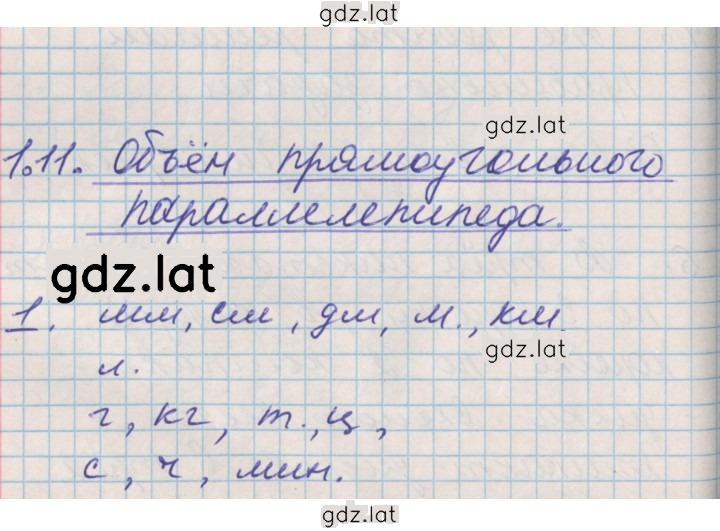 gdz.lat
gdz.lat
1.11. Объём прямоугольного
параллелепипеда.
gdz.lat
1. мм, см, дм, м., км.
gdz.lat
л.
г, кг, т., ц,
с, ч, мин.
gdz.lat